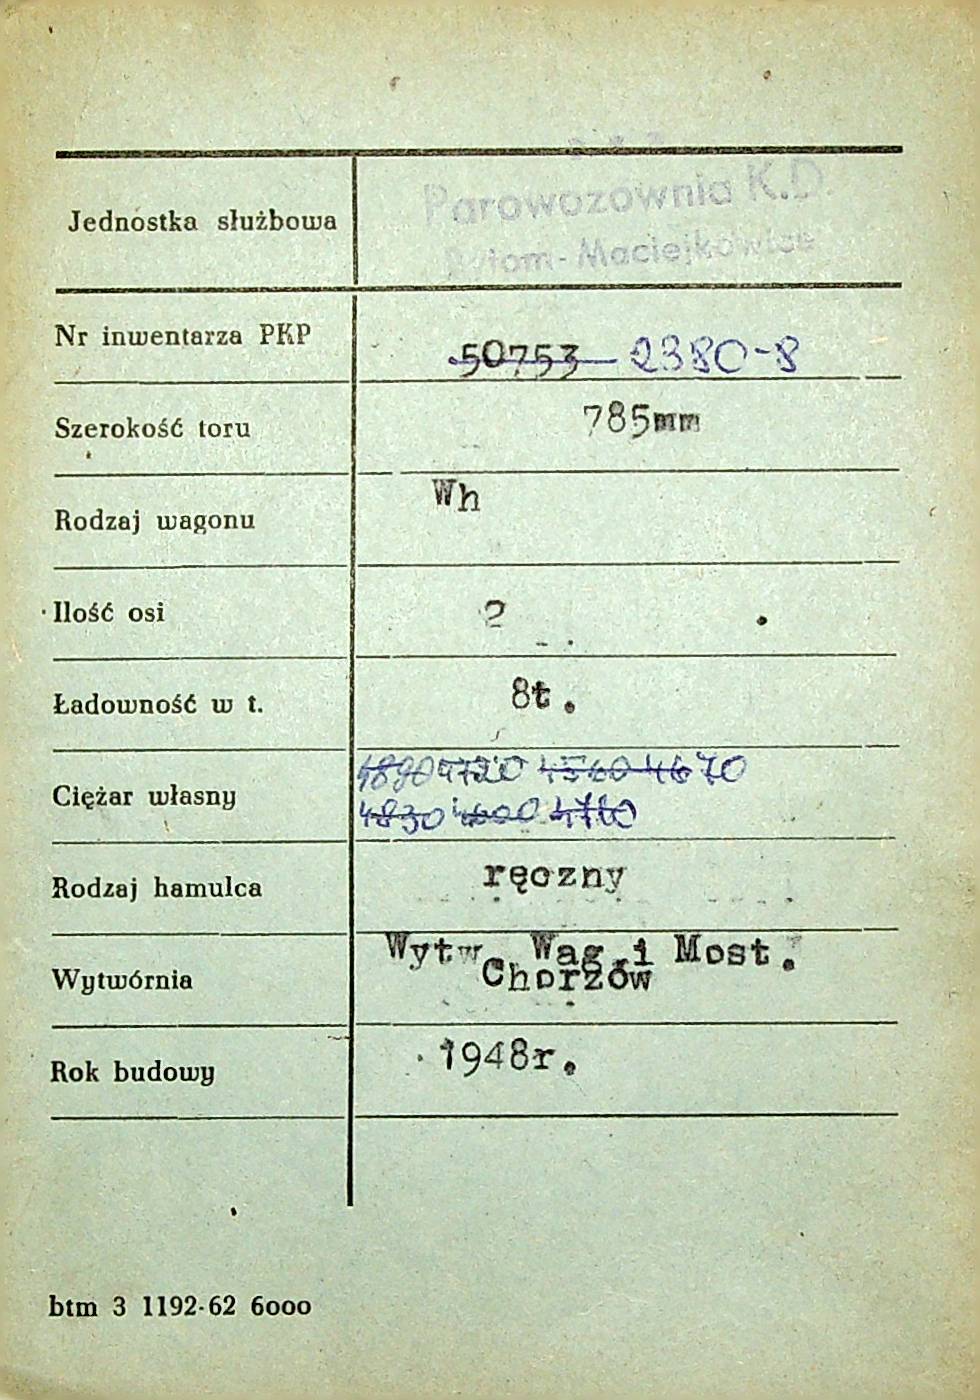 Parowozownia K.D.
Jednostka służbowa
Bytom-Maciejkowice
Nr inwentarza PKP 50753 2380-8
Szerokość toru 785mm
Rodzaj wagonu Wh
Ilość osi 2
Ładowność w t. 8t.
4890 4720 4560 4670
Ciężar własny
4830 4600
Rodzaj hamulca ręczny
Wytw. Wag.i Most.
Wytwórnia Chorzów
Rok budowy 1948r.
btm 3 1192-62 6000